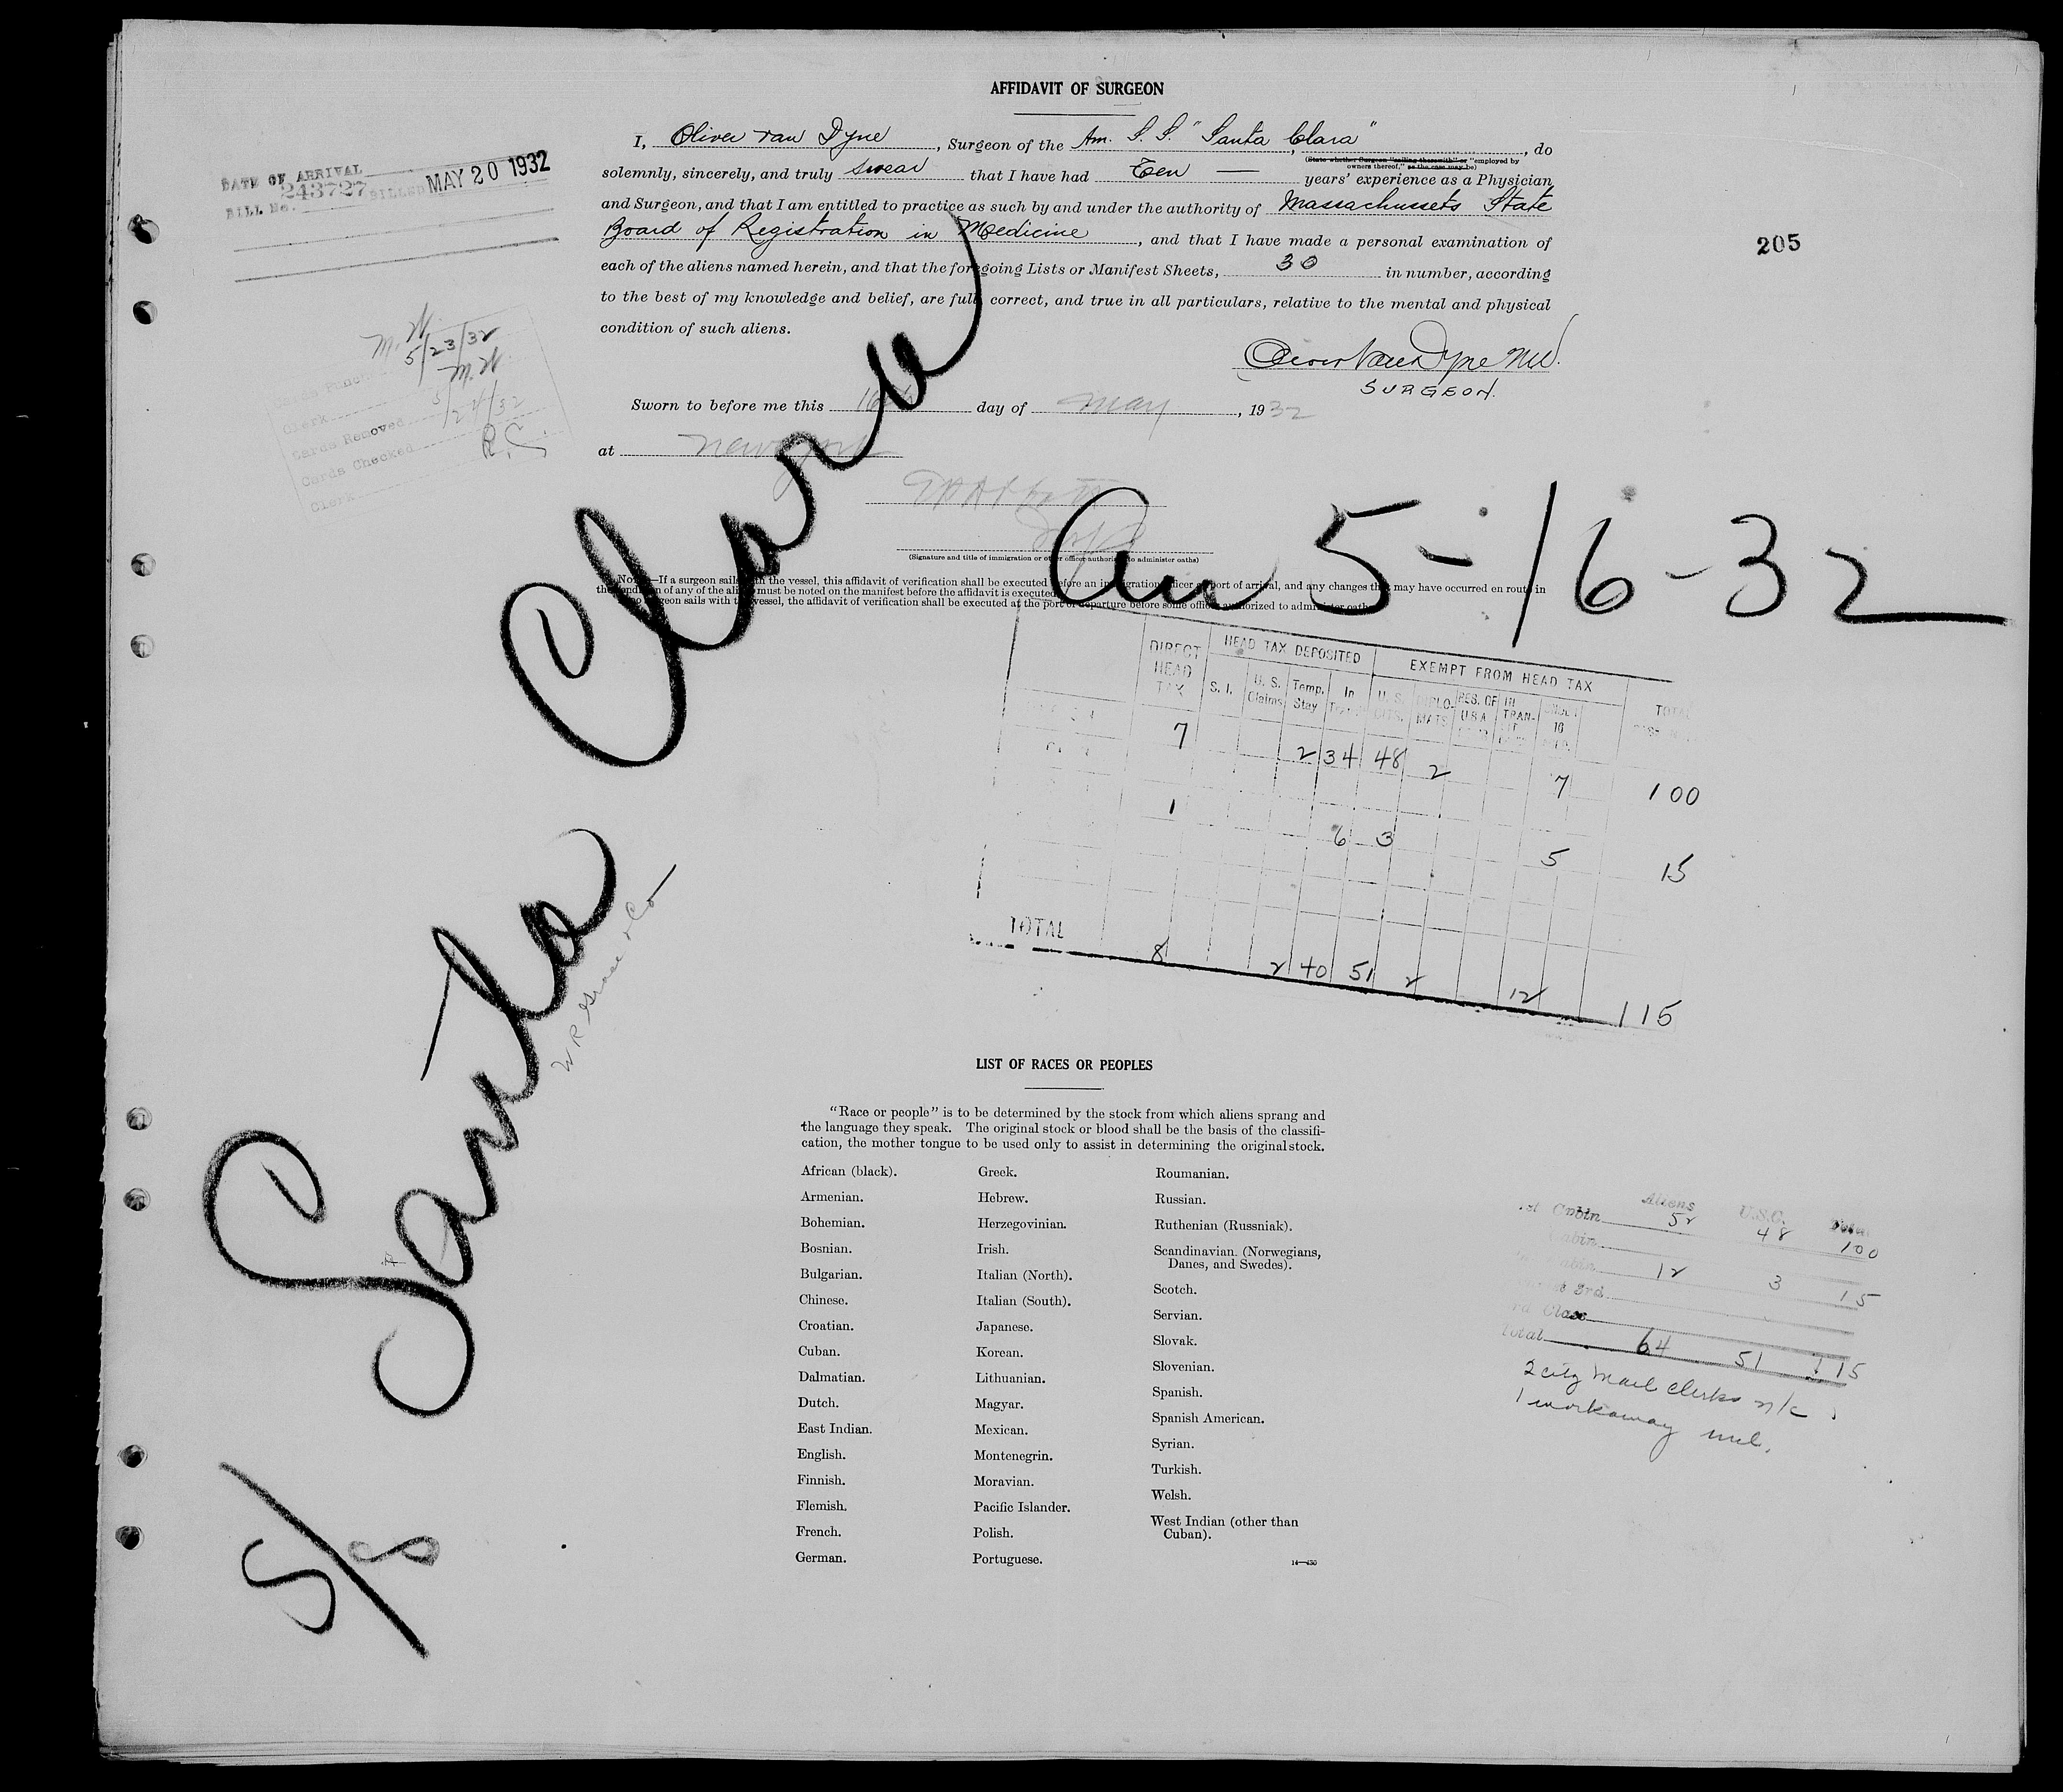 AFFIDAVIT OF SURGEON
I, Oliver van Dyne, Surgeon of the Am. S. S. "Santa Clara", do
(State whether Surgeon "sailing therewith" or "employed by
owners thereof," as the case may be)
solemnly, sincerely, and truly swear that I have had Ten — years' experience as a Physician
and Surgeon, and that I am entitled to practice as such by and under the authority of Massachussets State
Board of Registration in Medicine, and that I have made a personal examination of
each of the aliens named herein, and that the foregoing Lists or Manifest Sheets, 30 in number, according
to the best of my knowledge and belief, are full, correct, and true in all particulars, relative to the mental and physical
condition of such aliens.
Oliver Van Dyne MD.
SURGEON.
Sworn to before me this 16th day of May, 1932
at New York
(Signature and title of immigration or other officer authorized to administer oaths)
NOTE.—If a surgeon sails with the vessel, this affidavit of verification shall be executed before an immigration officer at port of arrival, and any changes that may have occurred en route in
the condition of any of the aliens must be noted on the manifest before the affidavit is executed.
If no surgeon sails with the vessel, the affidavit of verification shall be executed at the port of departure before some officer authorized to administer oaths.
DATE OF ARRIVAL
BILL No. 243727 BILLED MAY 20 1932
205
M. K.
5/23/32
Clerk
M. K.
Cards Removed 5/24/32
Cards Checked
Clerk
Santa Clara
S/S
W R Grace & Co
Arr 5-16-32
DIRECT HEAD TAX
HEAD TAX DEPOSITED
EXEMPT FROM HEAD TAX
S. I. U. S. Claims Temp. Stay In U. S. CITS. DIPLOMATS RES. OF U.S.A. IN TRANSIT UNDER 16 TOTAL
7 2 34 48 2 7 100
1 6 3 5 15
TOTAL 8 2 40 51 2 12 115
LIST OF RACES OR PEOPLES
"Race or people" is to be determined by the stock from which aliens sprang and
the language they speak. The original stock or blood shall be the basis of the classifi-
cation, the mother tongue to be used only to assist in determining the original stock.
African (black).
Armenian.
Bohemian.
Bosnian.
Bulgarian.
Chinese.
Croatian.
Cuban.
Dalmatian.
Dutch.
East Indian.
English.
Finnish.
Flemish.
French.
German.
Greek.
Hebrew.
Herzegovinian.
Irish.
Italian (North).
Italian (South).
Japanese.
Korean.
Lithuanian.
Magyar.
Mexican.
Montenegrin.
Moravian.
Pacific Islander.
Polish.
Portuguese.
Roumanian.
Russian.
Ruthenian (Russniak).
Scandinavian. (Norwegians,
Danes, and Swedes).
Scotch.
Servian.
Slovak.
Slovenian.
Spanish.
Spanish American.
Syrian.
Turkish.
Welsh.
West Indian (other than
Cuban).
14—430
Aliens U.S.C. Total
Cabin 52 48 100
Cabin
Cabin 12 3 15
3rd
Class
Total 64 51 115
2 city mail clerks n/c
1 workaway incl.